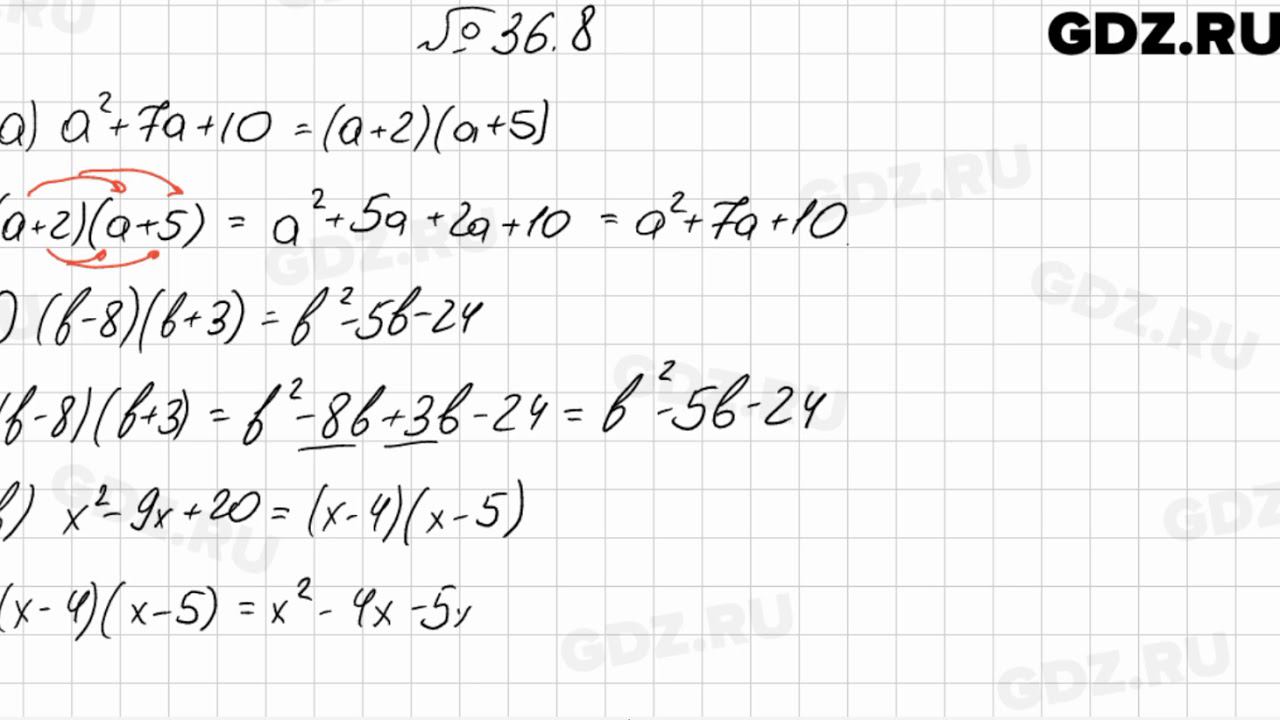 № 36.8
GDZ.RU
а) a²+7a+10 = (a+2)(a+5)
(a+2)(a+5) = a²+5a+2a+10 = a²+7a+10
) (b-8)(b+3) = b²-5b-24
(b-8)(b+3) = b²-8b+3b-24 = b²-5b-24
в) x²-9x+20 = (x-4)(x-5)
(x-4)(x-5) = x²-4x-5